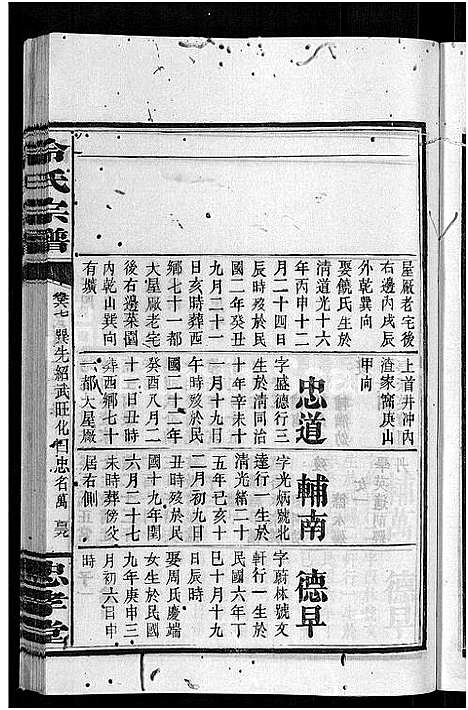 星厰老宅後
右邊內戌辰
外乾巽向
娶饒氏生於
清道光十六
年丙申十二
月二十四日
辰時歿於民
國二年癸丑
九月二十一
日亥時葬西
鄉七十一都
大星厰老宅
後右邊菜園
內乾山巽向
有墳
上首井冲內
渣家窩庚山
甲向
忠道
字盛德行三
生於清同治
十年辛未十
一月十九日
午時歿於民
國二十二年
癸酉八月二
十一日丑時
葬西鄉七十
一都大星厰
輔南
字光炳號北
達行一生於
清光緒二十
五年己亥十
二月初九日
丑時歿於民
國十九年閏
六月二十七
未時葬傍父
居右側
德早
字蔚林號文
軒行一生於
民國六年丁
巳十月十九
日辰時
娶周氏慶端
女生於民國
九年庚申三
月初六日申
時
冷氏宗譜
巽先紹武旺化日忠名萬
忠孝堂